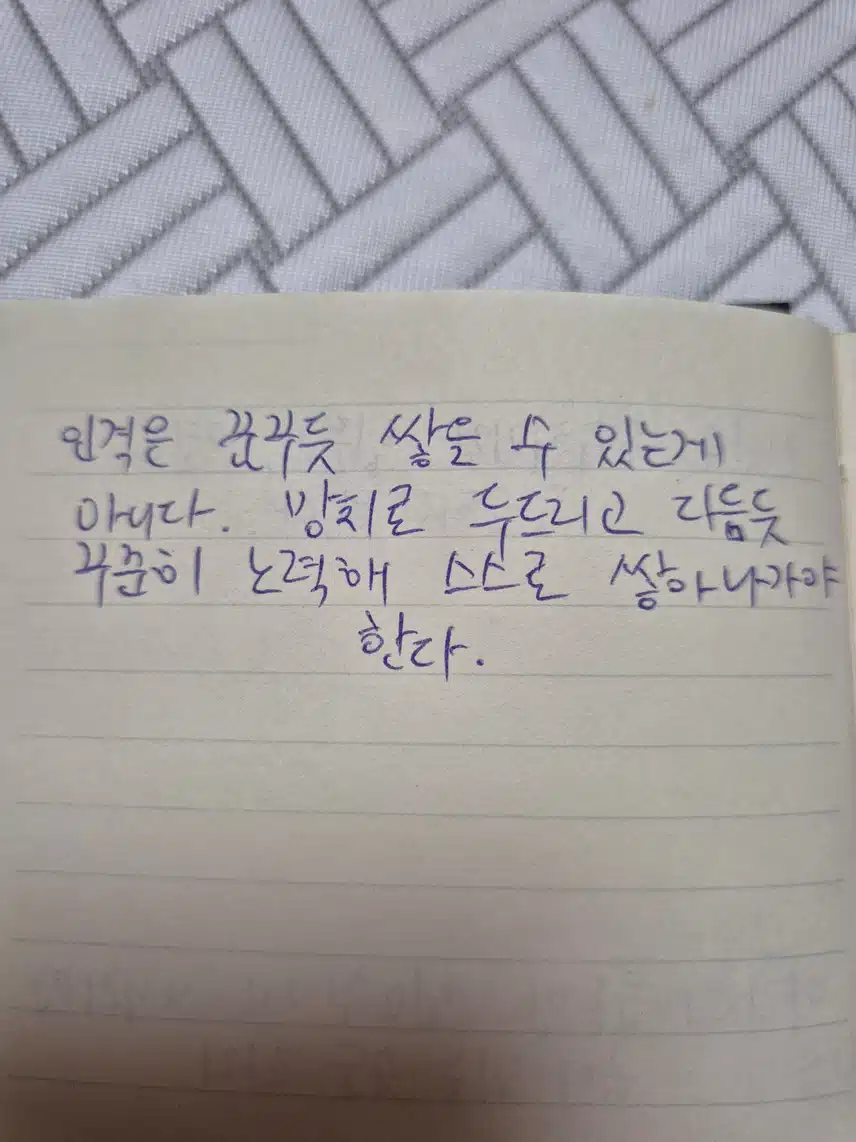 인격은 꿈꾸듯 쌓을 수 있는게
아니다. 망치로 두드리고 다듬듯
꾸준히 노력해 스스로 쌓아나가야
한다.